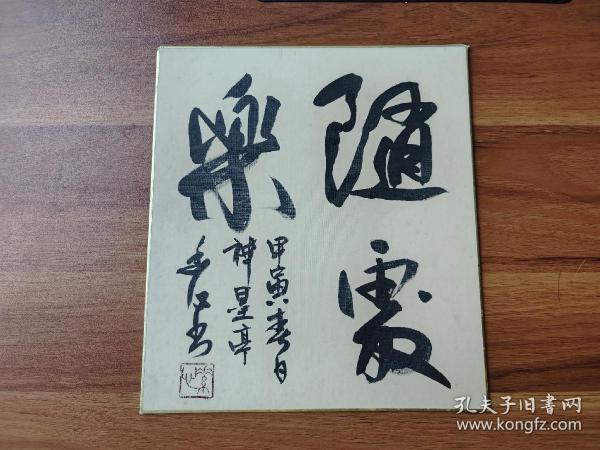 隨處
樂
甲寅春日
神星亭
孔夫子旧書网
www.kongfz.com